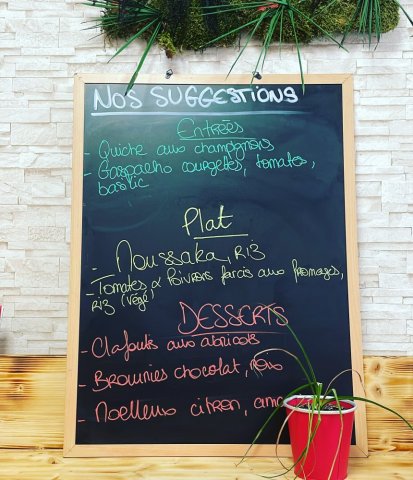 NOS SUGGESTIONS
Entrées
- Quiche aux champignons
- Gaspacho courgettes, tomates,
basilic
Plat
- Moussaka, Riz
- Tomates & Poivrons farcis aux fromages,
Riz (végé)
DESSERTS
- Clafoutis aux abricots
- Brownies chocolat, noix
- Moelleux citron,